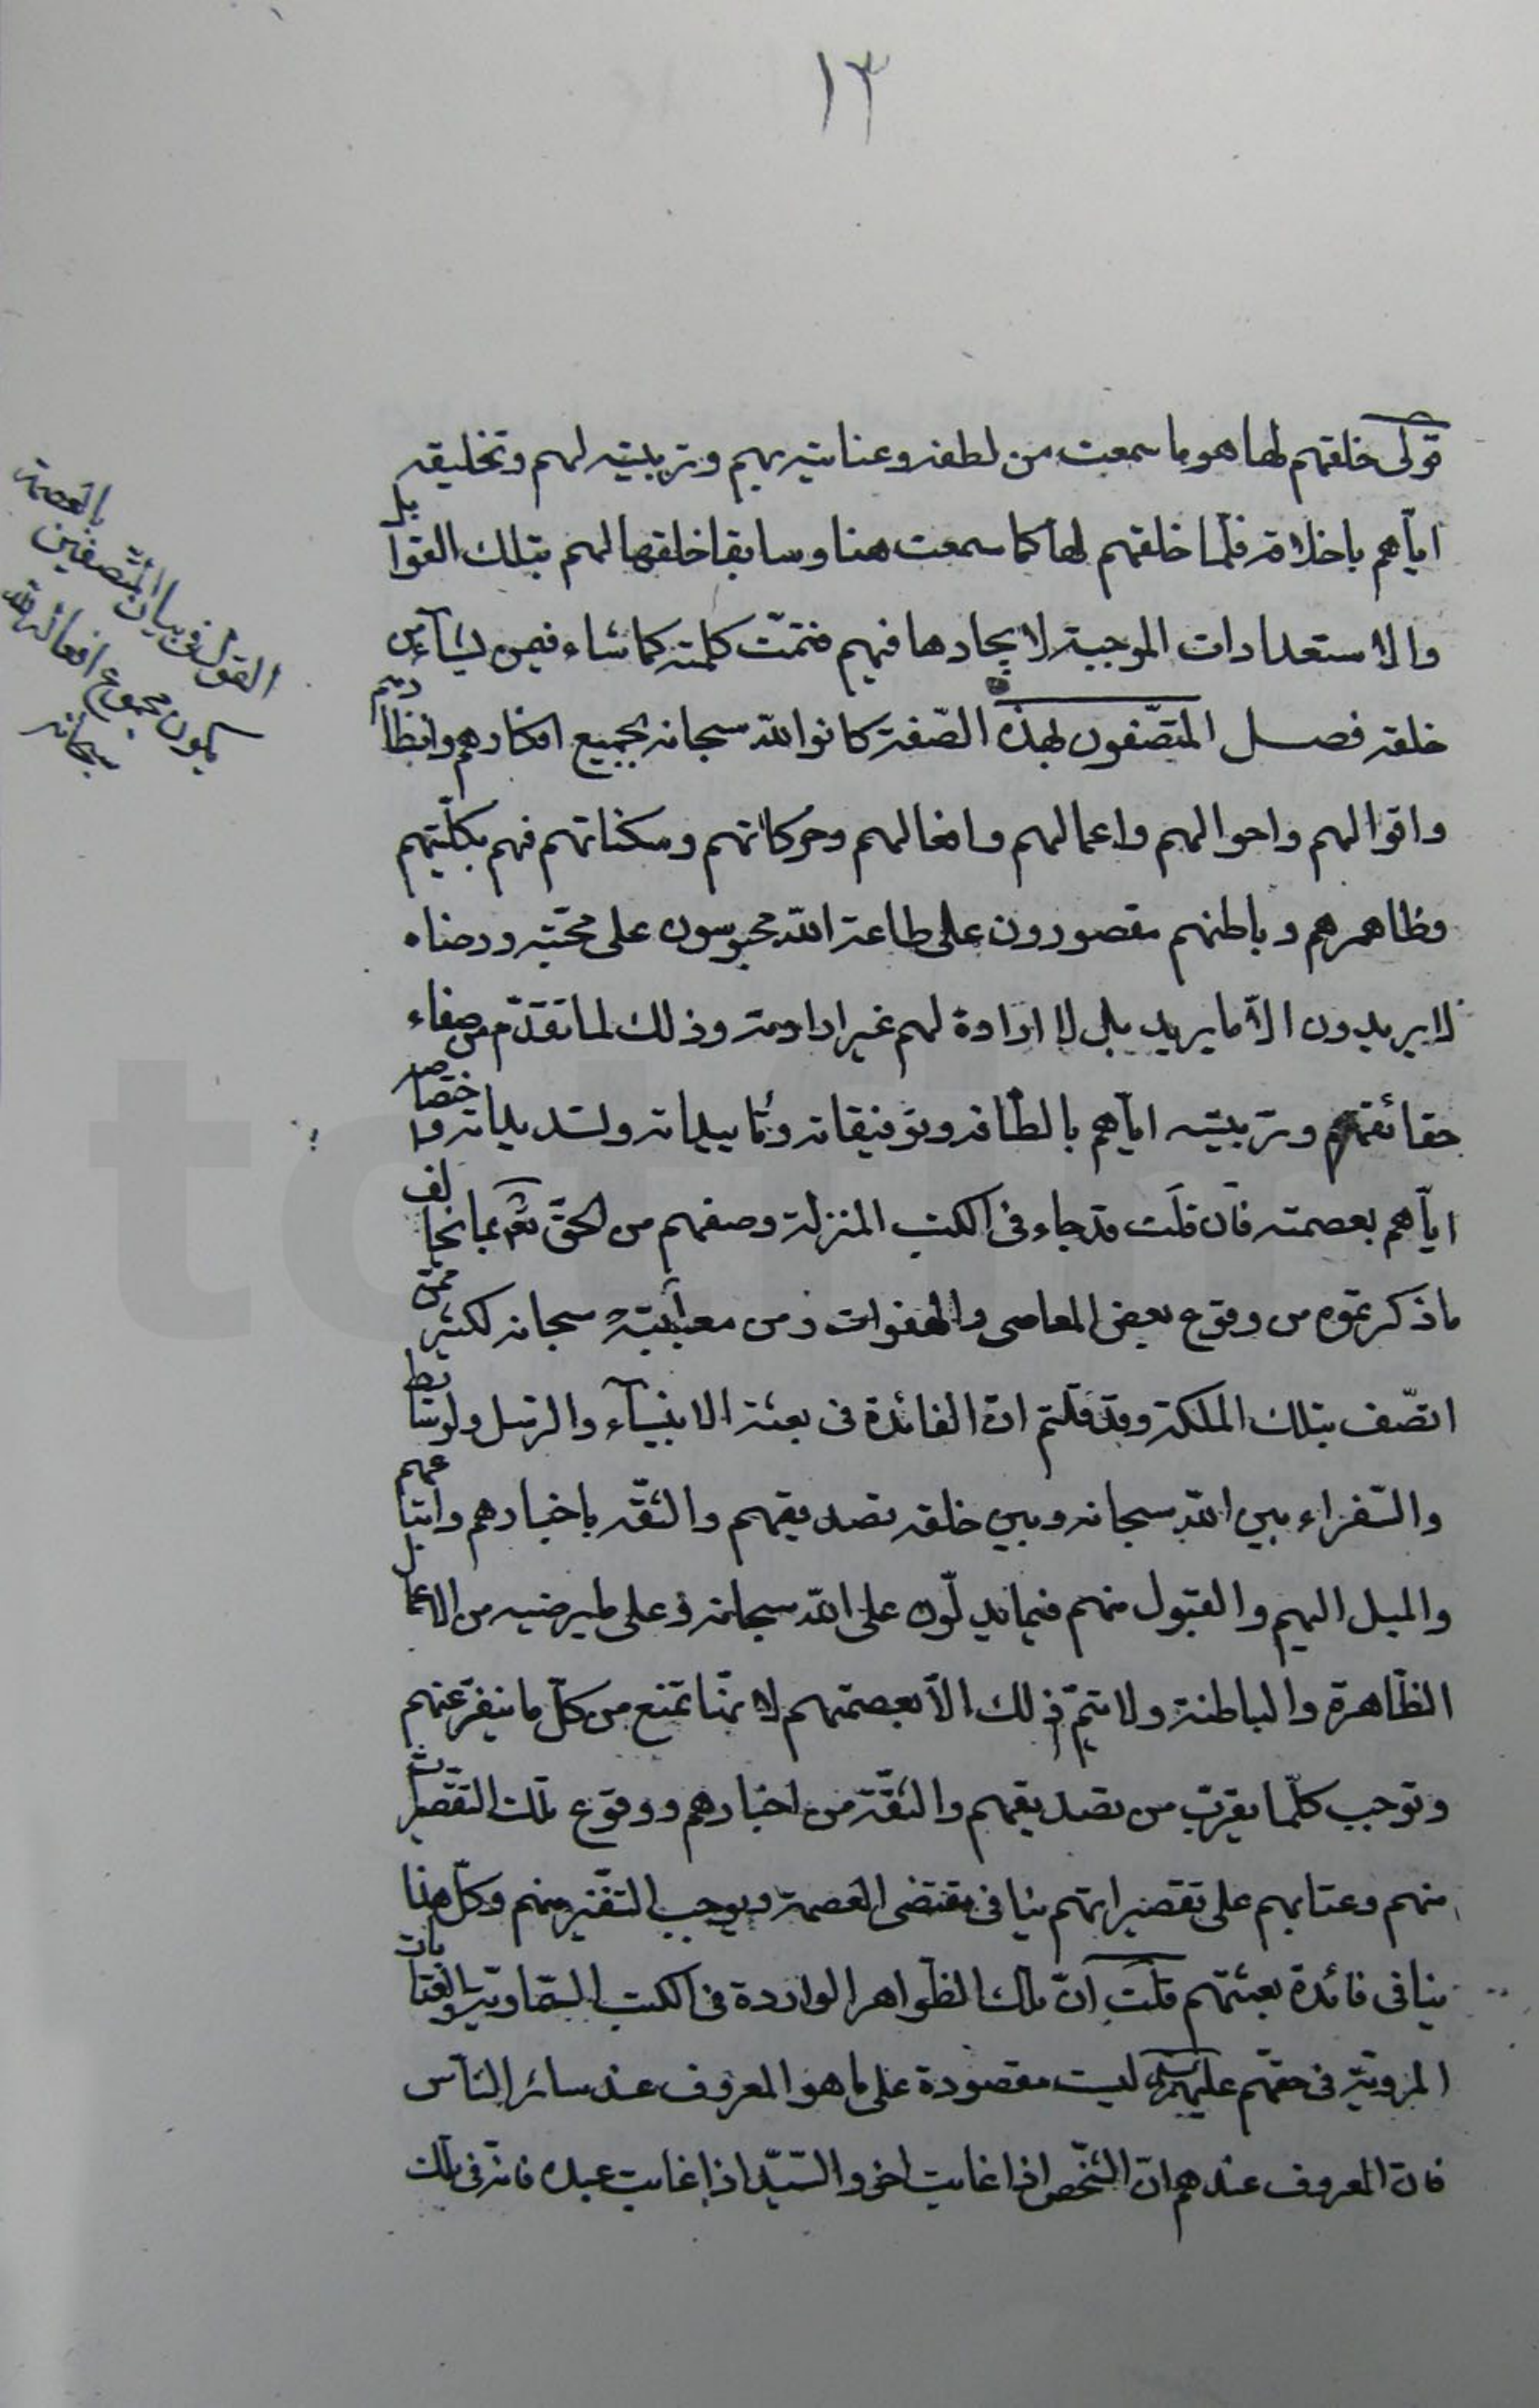 ١٣
قولى خلقهم لها هو ما سمعت من لطفه وعنايته بهم وتربيته لهم وتخليقه
اياهم باخلاقه فلما خلقهم لها كما سمعت هنا وسابقا خلقها لهم بتلك القوابل
والاستعدادات الموجبة لايجادها فيهم فتمت كلمته كما شاء فيمن يشاء من
خلقه فصل المتصفون بهذه الصفة كانوا لله سبحانه بجميع افكارهم وانظارهم
واقوالهم واحوالهم واعمالهم وافعالهم وحركاتهم وسكناتهم فهم بكليتهم
وظاهرهم وباطنهم مقصورون على طاعة الله محبوسون على محبته ورضاه
لا يريدون الا ما يريد بل لا ارادة لهم غير ارادته وذلك لما تقدم من صفاء
حقائقهم وتربيته اياهم بالطافه وتوفيقاته وتاييداته وتسديداته واختصاصه
اياهم بعصمته فان قلت قد جاء فى الكتب المنزلة وصفهم من الحق تعالى بما يخالف
ما ذكرتموه من وقوع بعض المعاصى والهفوات ومن معاتبته سبحانه لكثير ممن
اتصف بتلك الملكة وقد قلتم ان الفائدة فى بعثة الانبياء والرسل
والسفراء بين الله سبحانه وبين خلقه تصديقهم والثقة باخبارهم واتباعهم
والميل اليهم والقبول منهم فيما يدلون على الله سبحانه وعلى ما يرضيه من الاعمال
الظاهرة والباطنة ولا يتم ذلك الا بعصمتهم لانها تمنع من كل ما ينفر عنهم
وتوجب كلما يقرب من تصديقهم والثقة من اخبارهم ووقوع تلك التقصيرات
منهم وعتابهم على تقصيراتهم ينافى مقتضى العصمة ويوجب التنفير منهم وكل هذا
ينافى فائدة بعثتهم قلت ان تلك الظواهر الواردة فى الكتب السماوية والعتابات
المروية فى حقهم عليهم السلام ليست مقصودة على ما هو المعروف عند سائر الناس
فان المعروف عندهم ان الشخص اذا عاتب اخر والسيد اذا عاتب عبده فانه فى تلك
القول فى بيان المتصفين بالعصمة
يكون مجموع افعالهم لله
سبحانه